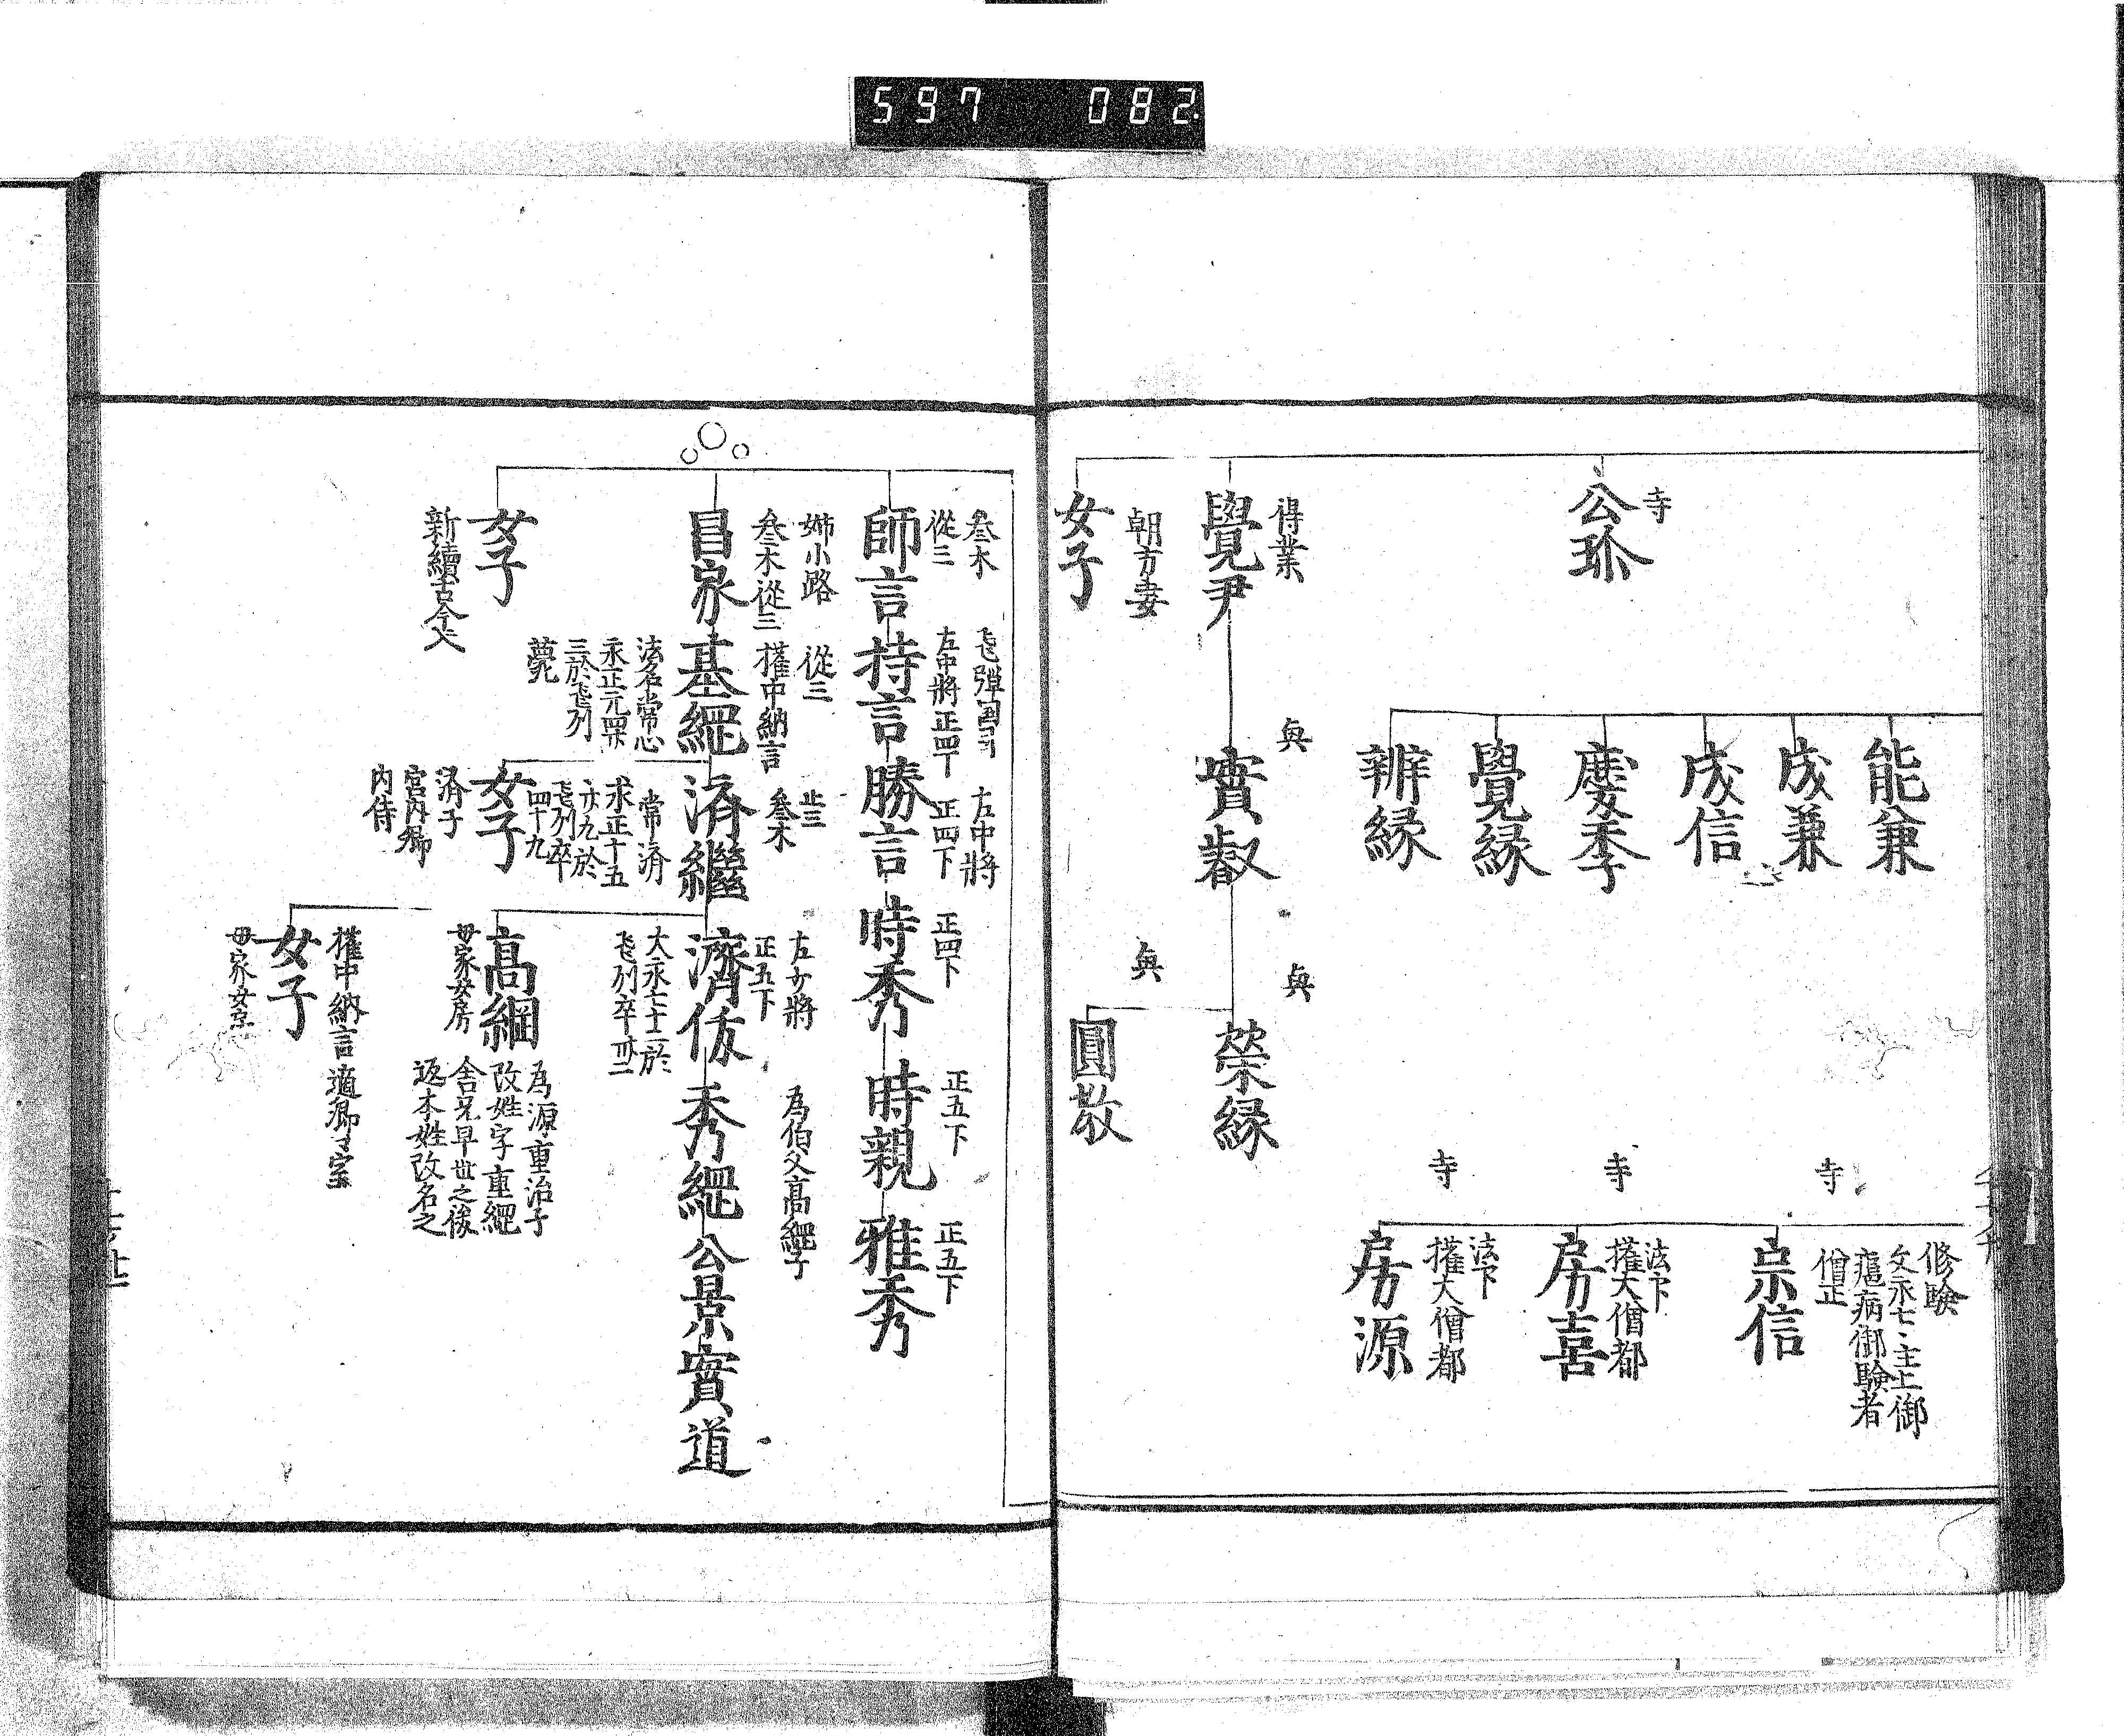 597 082
寺
公珎
得業
覺尹
朝方妻
女子
能兼
成兼
成信
慶季
覺縁
辨縁
與
實叡
與
榮縁
與
圓敬
寺
修驗
文永七、主上御
瘧病御驗者
僧正
宗信
寺
法下
權大僧都
房喜
寺
法下
權大僧都
房源
叄木
從三
師言
飛彈国司
左中將正四下
持言
左中將
正四下
勝言
正四下
時秀
正五下
時親
正五下
雅秀
姉小路
叄木從三
昌家
從三
權中納言
基綱
法名常心
永正元四廿
三於飛列
薨
正三
叄木
済繼
常済
永正十五
於
飛列卒
四十九
左少將
正五下
濟俊
大永七十二於
飛列卒
為伯父高綱子
秀綱
公景
實道
女子
新續古今人
女子
済子
宮内卿
内侍
高綱
母家女房
為源重治子
改姓字重綱
舎兄早世之後
返本姓改名之
權中納言適卿々室
女子
母家女房